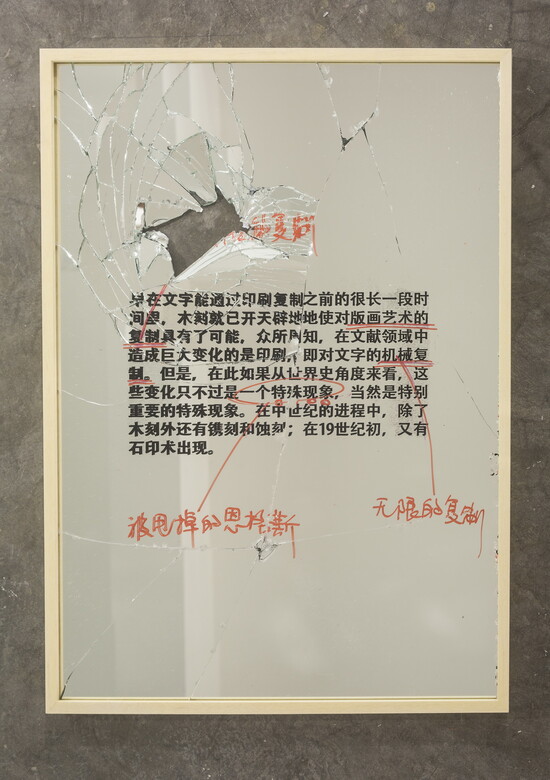 复制
早在文字能通过印刷复制之前的很长一段时
间里，木刻就已开天辟地地使对版画艺术的
复制具有了可能，众所周知，在文献领域中
造成巨大变化的是印刷，即对文字的机械复
制。但是，在此如果从世界史角度来看，这
些变化只不过是一个特殊现象，当然是特别
重要的特殊现象。在中世纪的进程中，除了
木刻外还有镌刻和蚀刻；在19世纪初，又有
石印术出现。
无限的复制
被甩掉的恩格斯